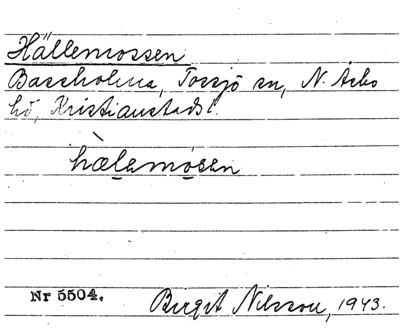 Hällemossen
Bassholma, Tossjö sn, N. Åsbo
hd, Kristianstads l.
hælemosen
Nr 5504.
Birgit Nilsson, 1943.